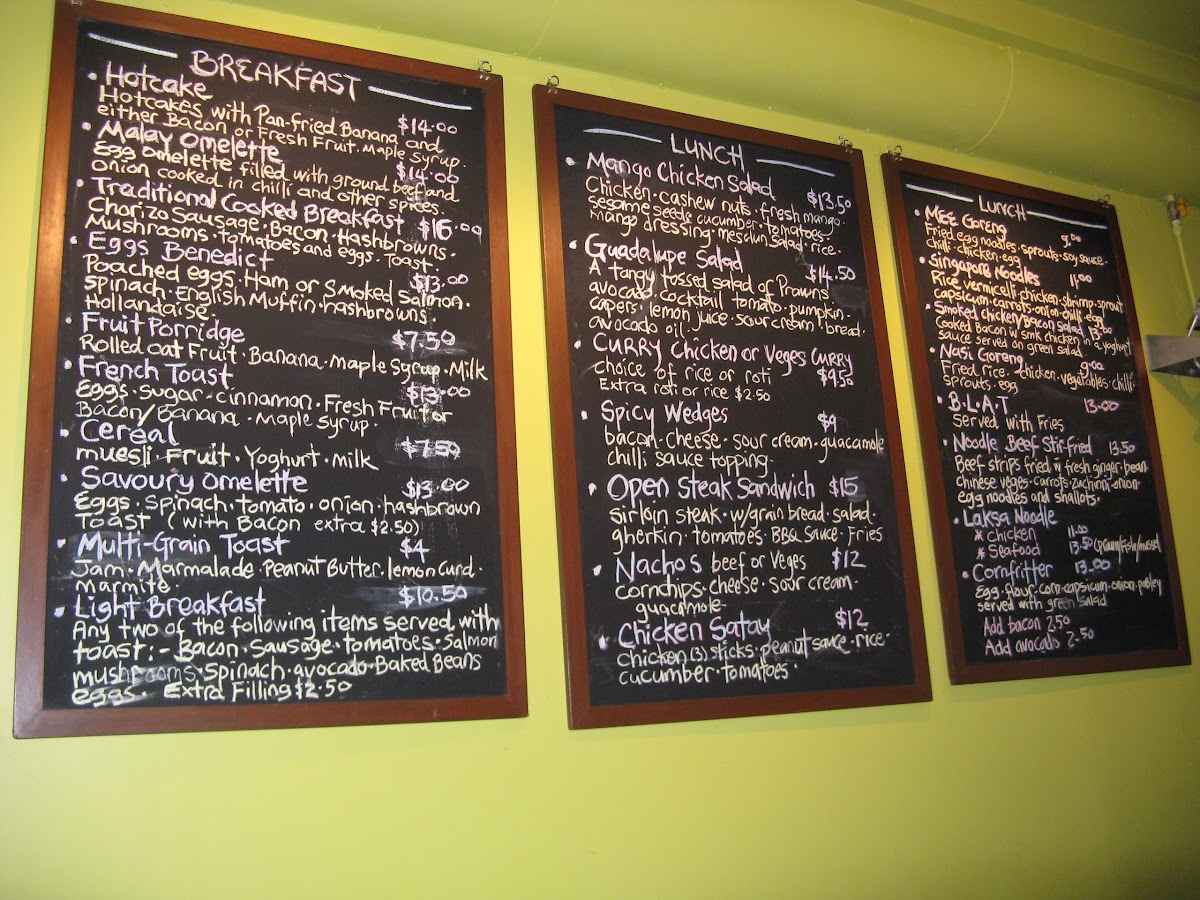 BREAKFAST
• Hotcake $14.00
Hotcakes with Pan-fried Banana and
either Bacon or Fresh Fruit. Maple Syrup.
• Malay Omelette $14.00
Egg Omelette filled with ground beef and
onion cooked in chilli and other spices
• Traditional Cooked Breakfast $16.00
Chorizo Sausage. Bacon. Hashbrowns.
Mushrooms. Tomatoes and eggs. Toast.
• Eggs Benedict $13.00
Poached eggs. Ham or Smoked Salmon.
spinach. English Muffin. hashbrowns.
Hollandaise.
• Fruit Porridge $7.50
Rolled Oat Fruit. Banana. Maple Syrup. Milk
• French Toast $13.00
Eggs. sugar. cinnamon. Fresh Fruit or
Bacon/Banana. Maple Syrup.
• Cereal $7.50
muesli. Fruit. Yoghurt. milk
• Savoury omelette $13.00
Eggs. Spinach. tomato. onion. hashbrown
Toast (with Bacon extra $2.50)
• Multi-Grain Toast $4
Jam. Marmalade. Peanut Butter. lemon Curd.
marmite.
• Light Breakfast $10.50
Any two of the following items served with
toast:- Bacon. Sausage. tomatoes. Salmon
mushrooms. Spinach. avocado. Baked Beans
eggs. Extra Filling $2.50
LUNCH
• Mango Chicken Salad $13.50
Chicken. cashew nuts. fresh mango.
sesame seeds. cucumber. tomatoes.
Mango dressing. mesclun Salad. rice.
• Guadalupe Salad $14.50
A tangy tossed salad of Prawns.
avocado. cocktail tomato. pumpkin.
capers. lemon juice. sour cream. bread.
avocado oil.
• CURRY Chicken or Veges CURRY
choice of rice or roti $9.50
Extra roti or rice $2.50
• Spicy Wedges $9
bacon. cheese. sour cream. guacamole
chilli sauce topping.
• Open Steak Sandwich $15
sirloin steak. w/grain bread. salad.
gherkin. tomatoes. BBQ Sauce. Fries
• Nachos beef or Veges $12
cornchips. cheese. sour cream.
guacamole.
• Chicken Satay $12
chicken (3) sticks. peanut sauce. rice.
cucumber. tomatoes.
LUNCH
• MEE Goreng 9.00
Fried egg noodles. sprouts. soy sauce.
chilli. chicken. egg
• Singapore Noodles 11.00
Rice vermicelli. chicken. shrimp. sprout
capsicum. carrots. onion. chilli. egg
• Smoked chicken/Bacon salad 13.00
Cooked Bacon w smk chicken in a yoghurt
sauce served on green salad
• Nasi Goreng 9.00
Fried rice. chicken. vegetables. chilli.
sprouts. egg
• B.L.A.T 13.00
Served with Fries
• Noodle Beef Stir-fried 13.50
Beef strips fried w fresh ginger. bean
chinese veges. carrots. zuchini. onion.
egg noodles and shallots.
• Laksa Noodle
* Chicken 11.00
* Seafood 13.50 (prawn/fish/mussel)
• Cornfritter 13.00
Egg. flour. corn. capsicum. onion. pasley
served with green salad
Add bacon 2.50
Add avocado 2.50